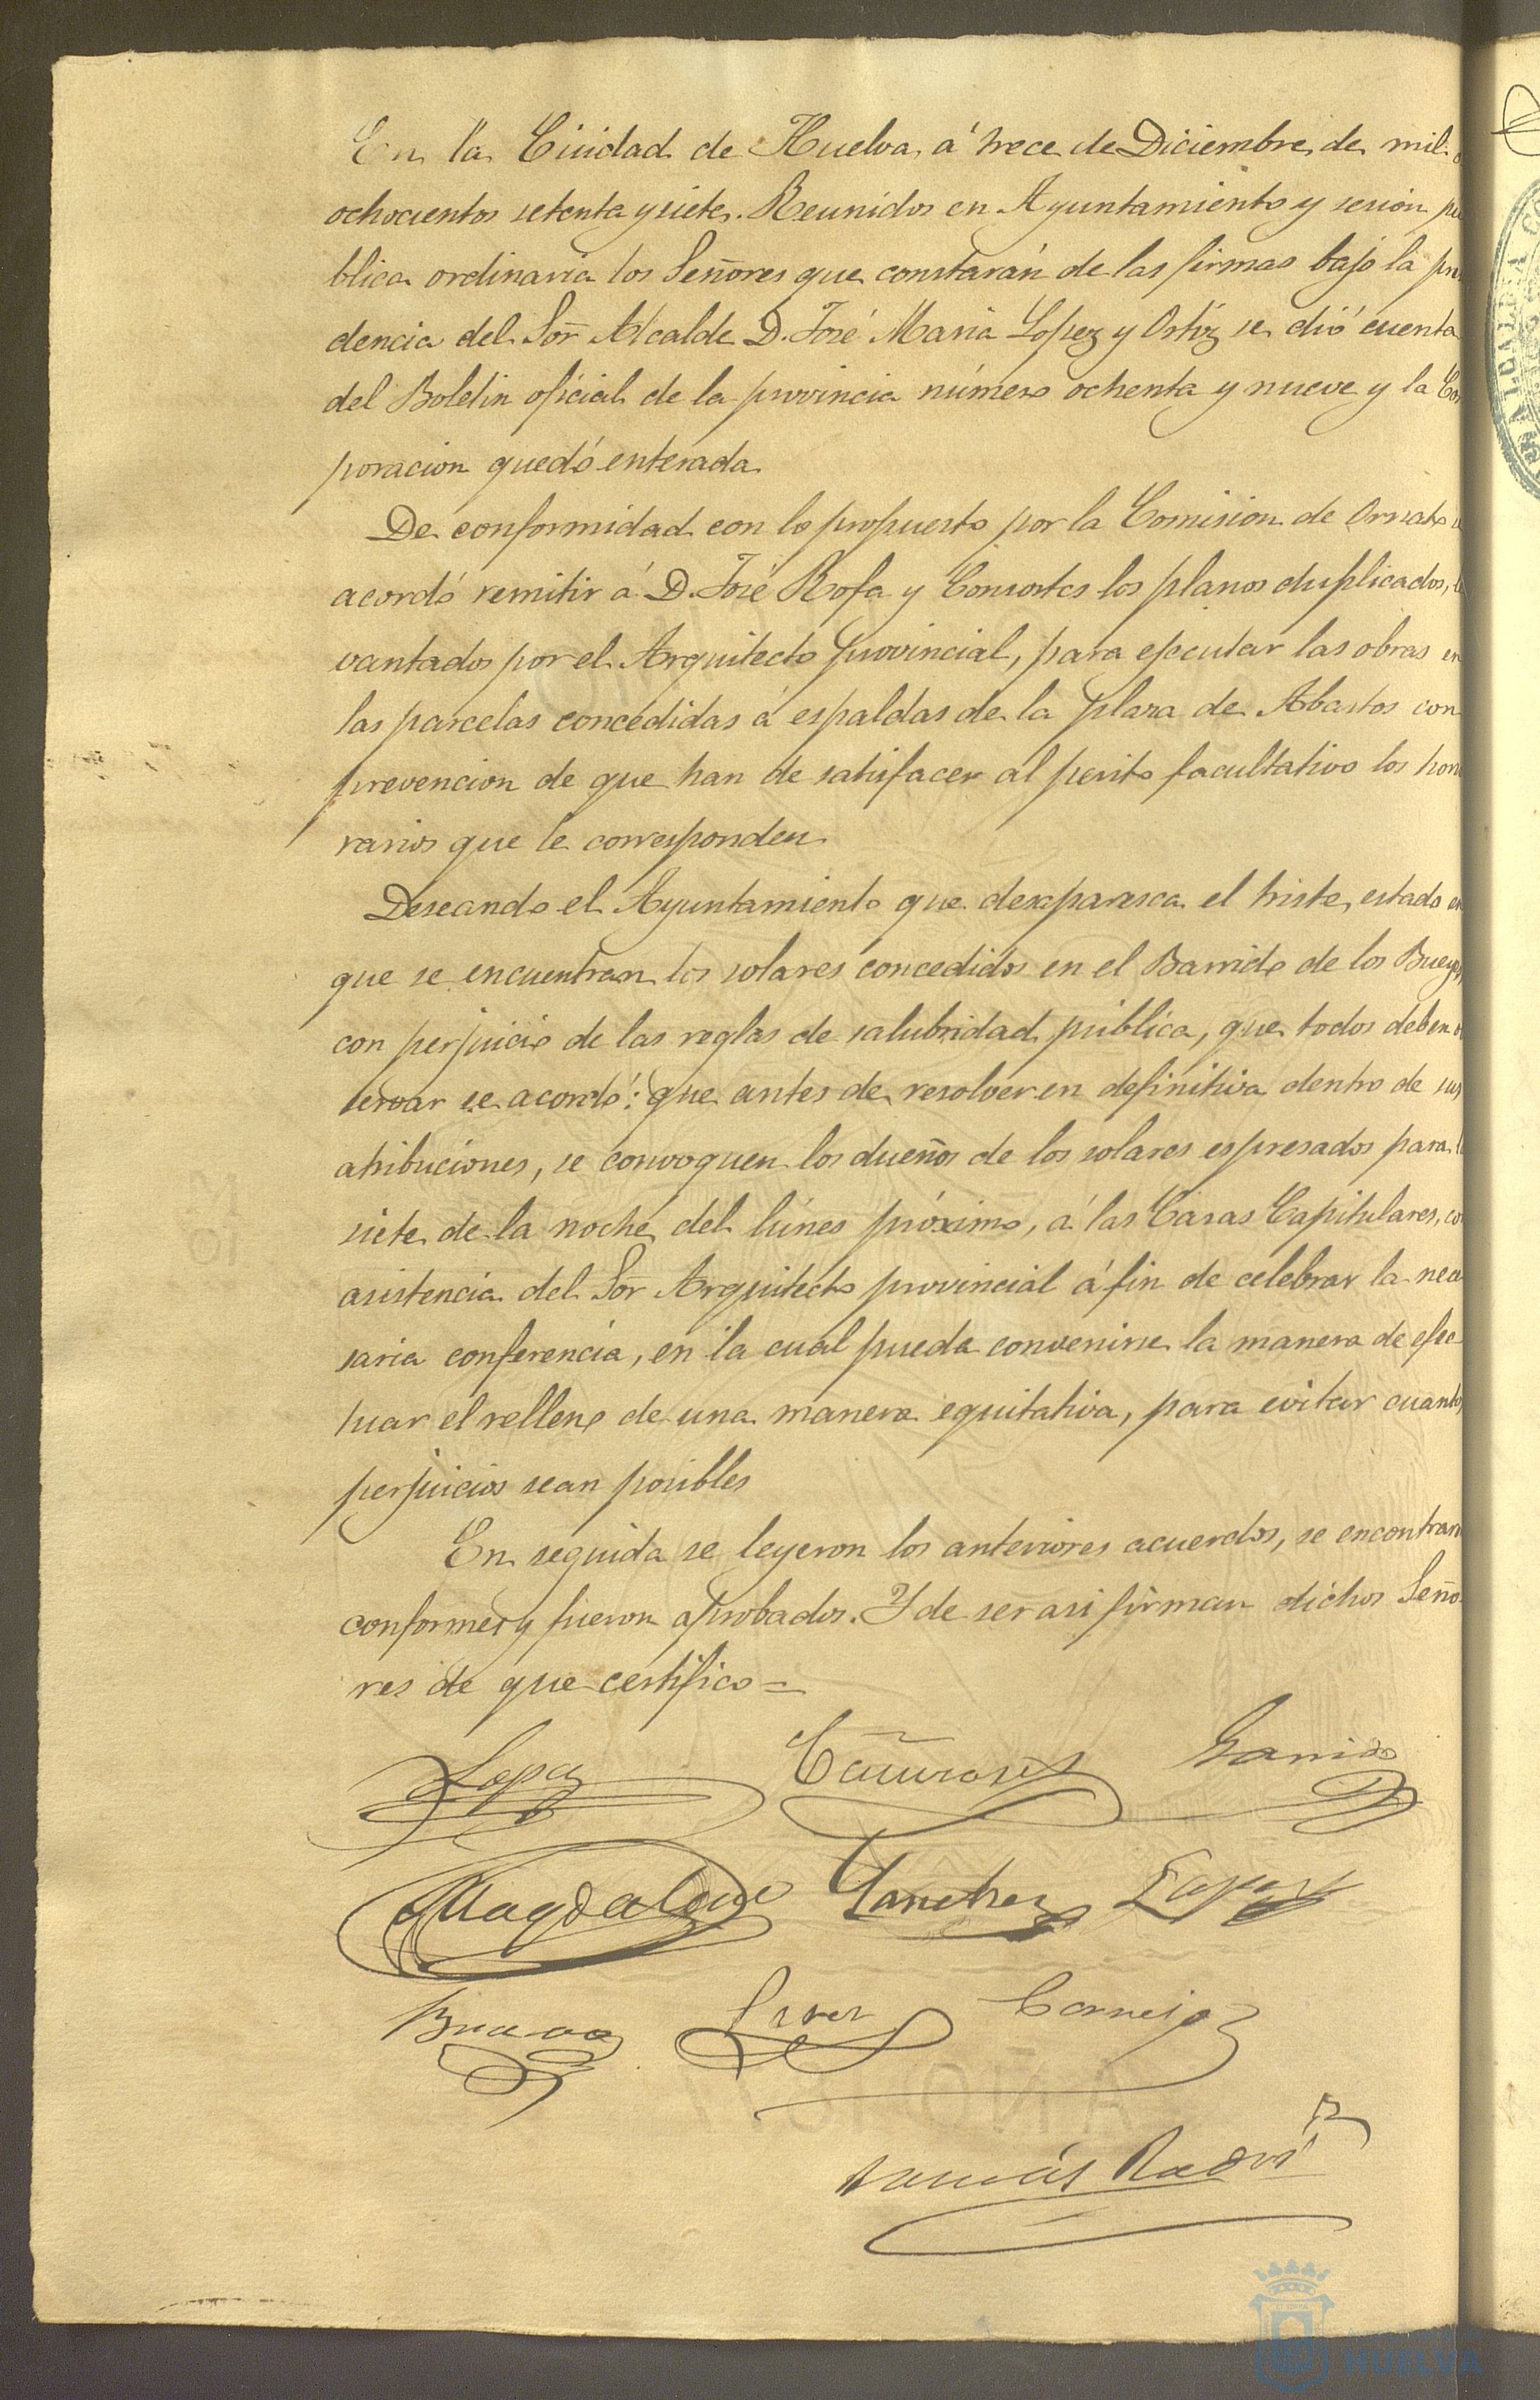 En la Ciudad de Huelva, á trece de Diciembre de mil
ochocientos setenta y siete. Reunidos en Ayuntamiento y sesion pu
blica ordinaria los Señores que constarán de las firmas bajo la pre
dencia del Sor Alcalde D. José Maria Lopez y Ortiz se dió cuenta
del Boletin oficial de la provincia número ochenta y nueve y la Cor
poracion quedó enterada.
De conformidad con lo propuesto por la Comision de Ornato
acordó remitir á D. José Rofa y Consortes los planos duplicados, le
vantados por el Arquitecto provincial, para ejecutar las obras en
las parcelas concedidas á espaldas de la plaza de Abastos con
prevencion de que han de satisfacer al perito facultativo los hono
rarios que le corresponden.
Deseando el Ayuntamiento que desaparesca el triste estado en
que se encuentran los solares concedidos en el Barrido de los Bueyes,
con perjuicio de las reglas de salubridad pública, que todos deben
servar se acordó: que antes de resolver en definitiva dentro de sus
atribuciones, se convoquen los dueños de los solares espresados para
siete de la noche del lúnes próximo, á las Casas Capitulares, co
asistencia del Sor Arquitecto provincial á fin de celebrar la nece
saria conferencia, en la cual pueda convenirse la manera de efec
tuar el relleno de una manera equitativa, para evitar cuantos
perjuicios sean posibles
En seguida se leyeron los anteriores acuerdos, se encontraron
conformes y fueron aprobados. Y de ser asi firman dichos Seño
res de que certifico =
Lopez Garrido
Magdalena Sanchez Lopez
Bravo Cornejo
Tomás Rodri
AÑO 187
HUELVA